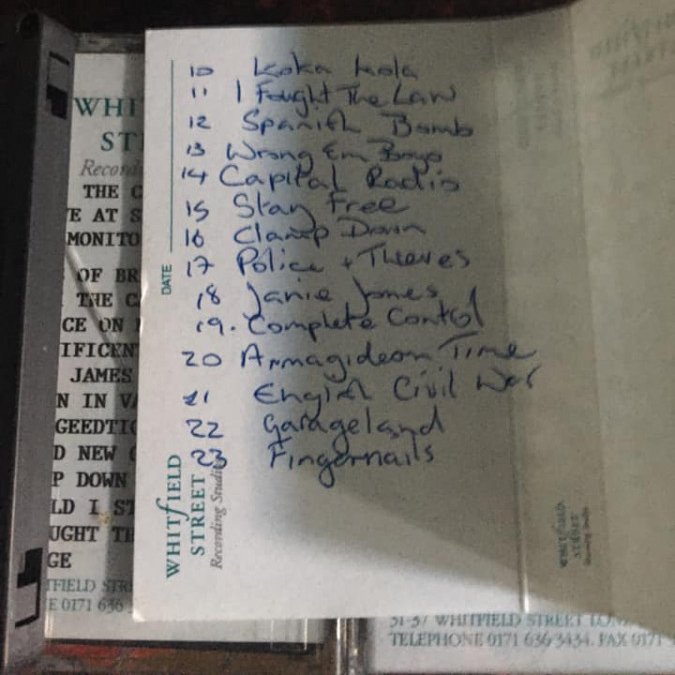 WHI
ST
Record
THE C
E AT S
MONITO
OF BR
THE C
CE ON
IFICEN
JAMES
N IN VA
GEEDTIO
D NEW
P DOWN
LD I ST
UGHT TH
GE
TFIELD STR
E 0171 636
10 Koka Kola
11 I Fought The Law
12 Spanish Bomb
13 Wrong Em Boyo
14 Capital Radio
15 Stay Free
16 Clamp Down
17 Police + Thieves
18 Janie Jones
19. Complete Control
20 Armagideon Time
21 English Civil War
22 Garageland
23 Fingernails
DATE
WHITFIELD
STREET
Recording Studios
WHITFIELD
STREET
31-37 WHITFIELD STREET LON
TELEPHONE 0171 636 3434. FAX 0171